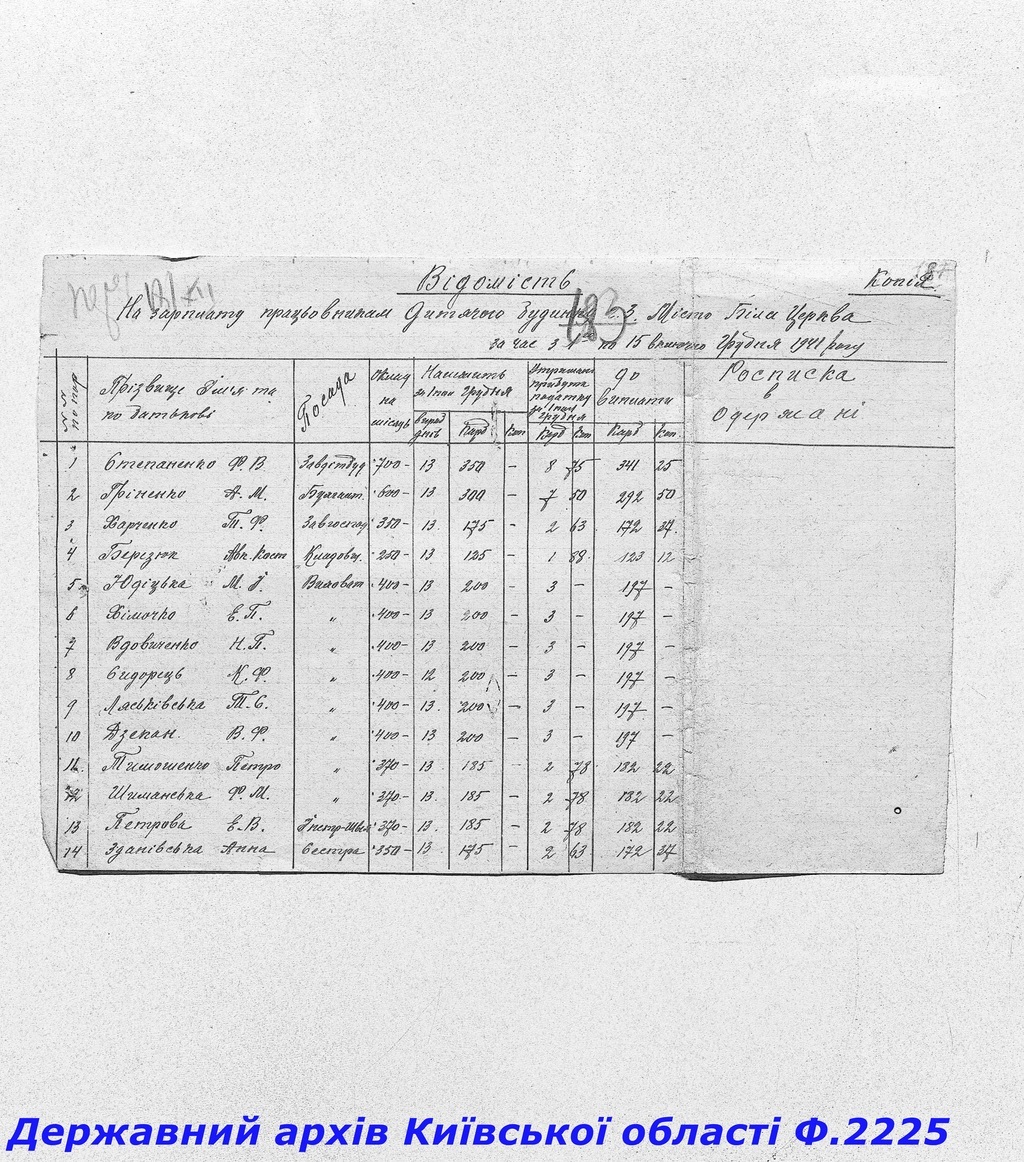 187
Відомість
Копія
183
На зарплату працьовникам Дитячого Будинку С. З. Місто Біла Церква
за час з 1го по 15 включно Грудня 1941 року
№№ Прізвище Ім'я та по батькові Посада Оклад на місяць Належить за 1 пол Грудня До виплати Росписка в одержані
днів Карб Коп Карб Коп Карб Коп.
1 Степаненко Ф. В Завдетбуд 700- 13 350 - 8 75 341 25
2 Гріненко А. М. 600- 13 300 - 7 50 292 50
3 Харченко Т. Ф. Завгоспод 350- 13 175 - 2 63 172 37
4 Березюк Кладовщ. 250- 13 125 - 1 88 123 12
5 Юдіцька М. Виховат 400- 13 200 - 3 - 197 -
6 Хімочко Е. П. " 400- 13 200 - 3 - 197 -
7 Вдовиченко Н. П. " 400- 13 200 - 3 - 197 -
8 Сидорець К. Ф. " 400- 12 200 - 3 - 197 -
9 Ляськівська Т. Є. " 400- 13 200 - 3 - 197 -
10 Дзекан В. Ф. " 400- 13 200 - 3 - 197 -
11 Тимошенко Петро " 370- 13 185 - 2 78 182 22
12 Шиманська Ф. М. " 370- 13 185 - 2 78 182 22
13 Петрова Е. В. 370- 13 185 - 2 78 182 22
14 Зданівська Анна Сестра 350- 13 175 - 2 63 172 37
Державний архів Київської області Ф.2225